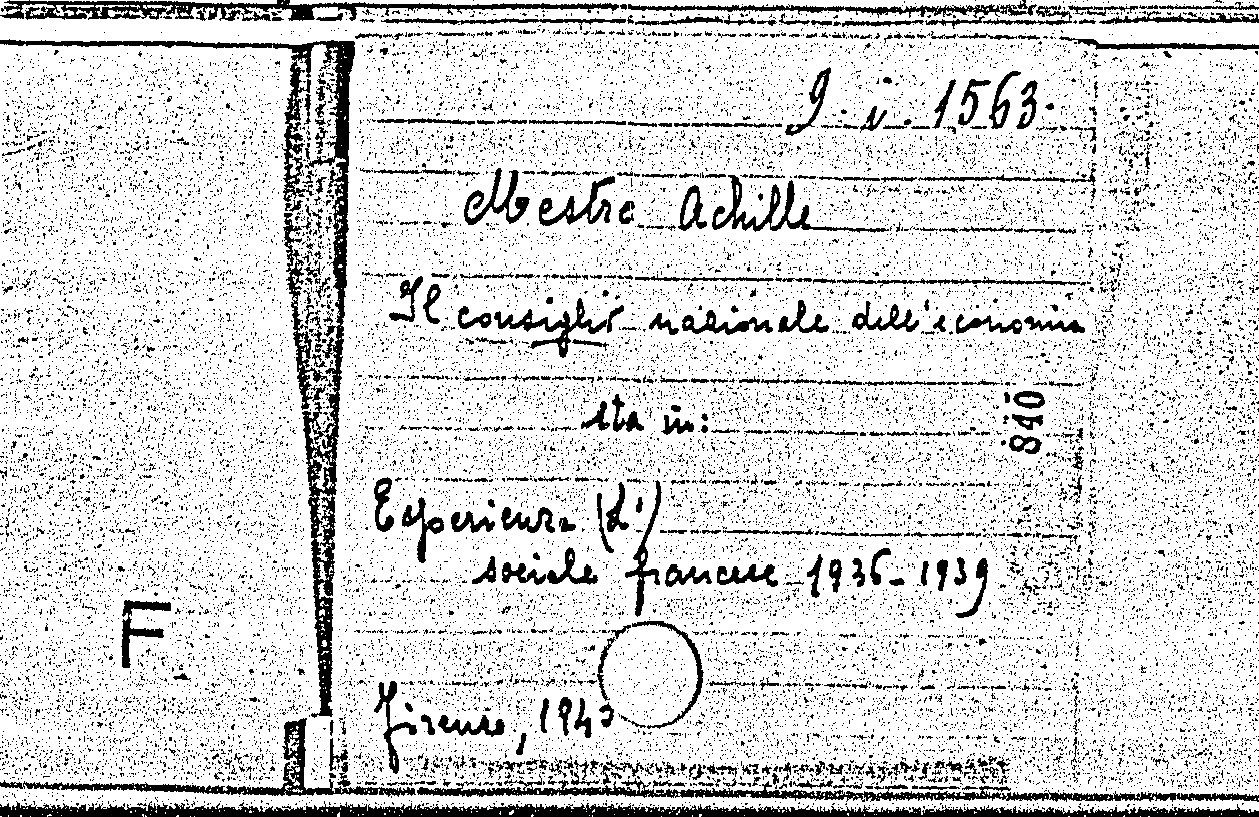 9. i. 1563.
Mestre Achille
Il consiglio nazionale dell'economia
sta in:
840
Esperienza (L')
sociale francese 1936-1939
F
Firenze,